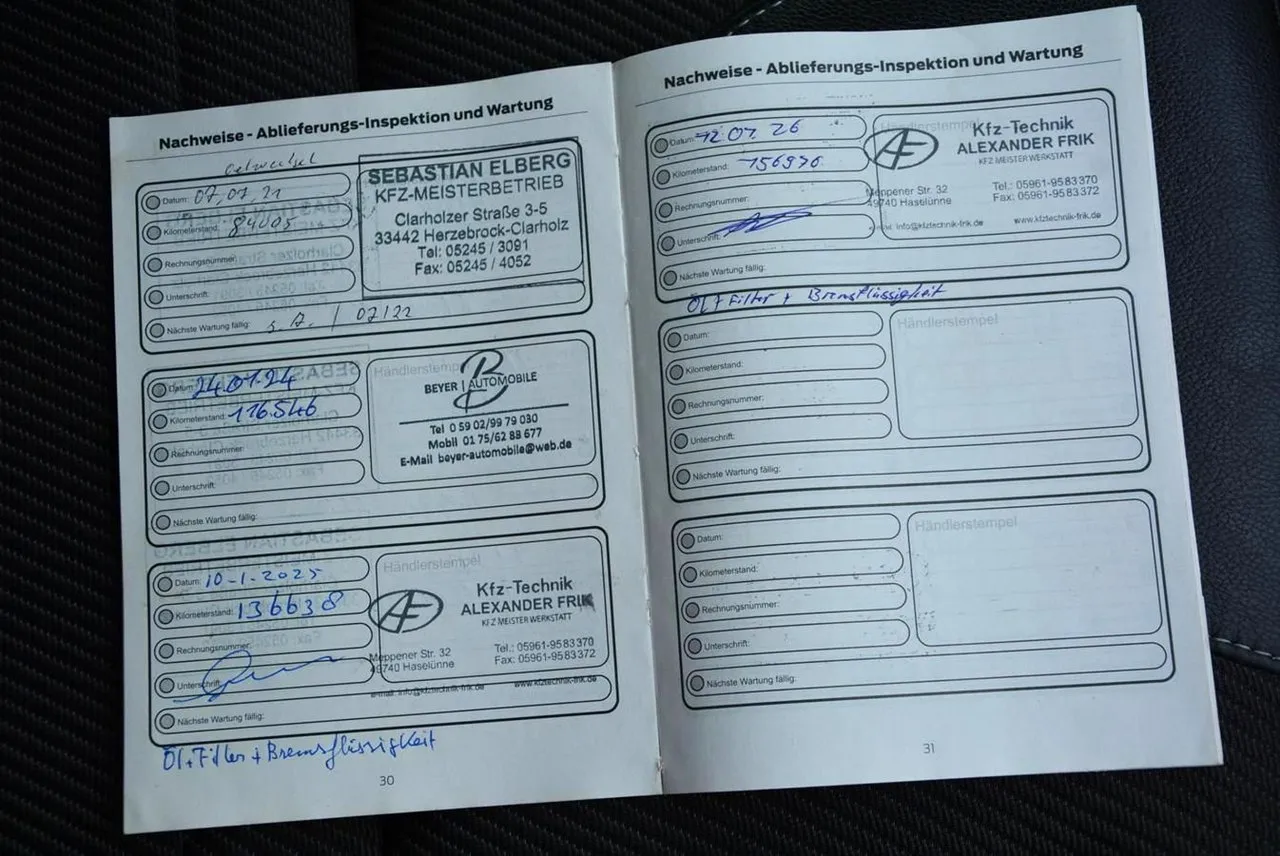 Nachweise - Ablieferungs-Inspektion und Wartung
Oelwechsel
Datum: 07.07.21
Kilometerstand: 84005
Rechnungsnummer:
Unterschrift:
Nächste Wartung fällig: s.A. / 07/22
SEBASTIAN ELBERG
KFZ-MEISTERBETRIEB
Clarholzer Straße 3-5
33442 Herzebrock-Clarholz
Tel: 05245 / 3091
Fax: 05245 / 4052
Datum: 24.01.24
Kilometerstand: 116.546
Rechnungsnummer:
Unterschrift:
Nächste Wartung fällig:
Händlerstempel
B
BEYER | AUTOMOBILE
Tel 0 59 02/99 79 030
Mobil 01 75/62 88 677
E-Mail beyer-automobile@web.de
Datum: 10-1-2025
Kilometerstand: 136638
Rechnungsnummer:
Unterschrift:
Nächste Wartung fällig:
Händlerstempel
AF
Kfz-Technik
ALEXANDER FRIK
KFZ MEISTER WERKSTATT
Meppener Str. 32
49740 Haselünne
Tel.: 05961-9583370
Fax: 05961-9583372
e-mail: info@kfztechnik-frik.de
www.kfztechnik-frik.de
Öl + Filter + Bremsflüssigkeit
30
Nachweise - Ablieferungs-Inspektion und Wartung
Datum: 12.01.26
Kilometerstand: 156976
Rechnungsnummer:
Unterschrift:
Nächste Wartung fällig:
Händlerstempel
AF
Kfz-Technik
ALEXANDER FRIK
KFZ MEISTER WERKSTATT
Meppener Str. 32
49740 Haselünne
Tel.: 05961-9583370
Fax: 05961-9583372
info@kfztechnik-frik.de
www.kfztechnik-frik.de
Öl + Filter + Bremsflüssigkeit
Datum:
Kilometerstand:
Rechnungsnummer:
Unterschrift:
Nächste Wartung fällig:
Händlerstempel
Datum:
Kilometerstand:
Rechnungsnummer:
Unterschrift:
Nächste Wartung fällig:
Händlerstempel
31